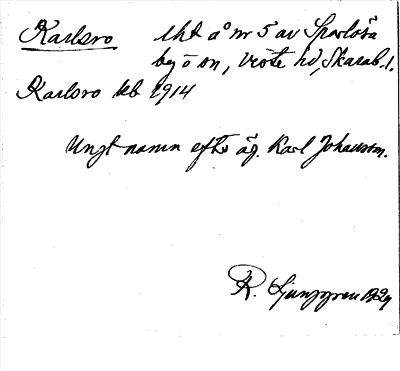 Karlsro lht å nr 5 av Sparlösa
by o sn, Viste hd, Skarab. l.
Karlsro kb 1914
Ungt namn efter äg. Karl Johansson.
R. Ljunggren 1929